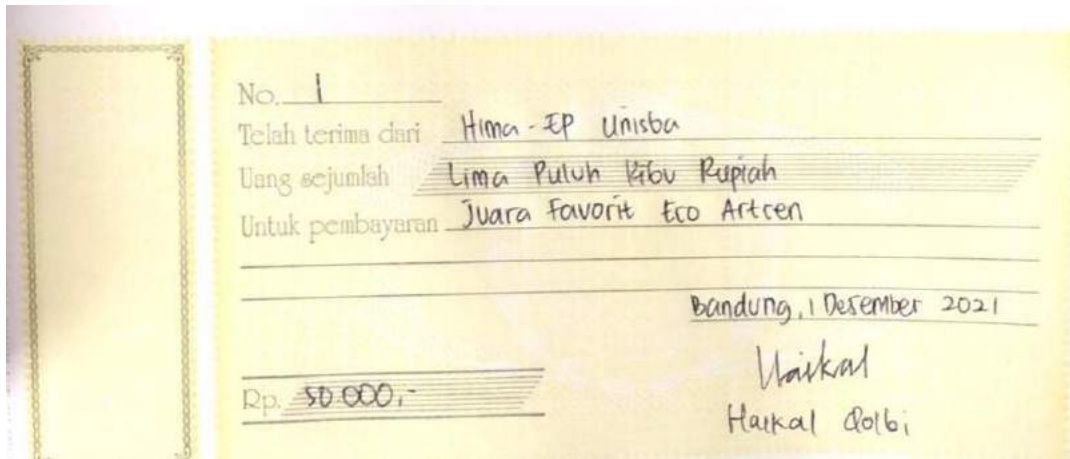 No. 1
Telah terima dari Hima-EP Unisba
Uang sejumlah Lima Puluh Ribu Rupiah
Untuk pembayaran Juara Favorit Eco Artcen
Bandung, 1 Desember 2021
Haikal
Rp. 50.000,-
Haikal Qolbi